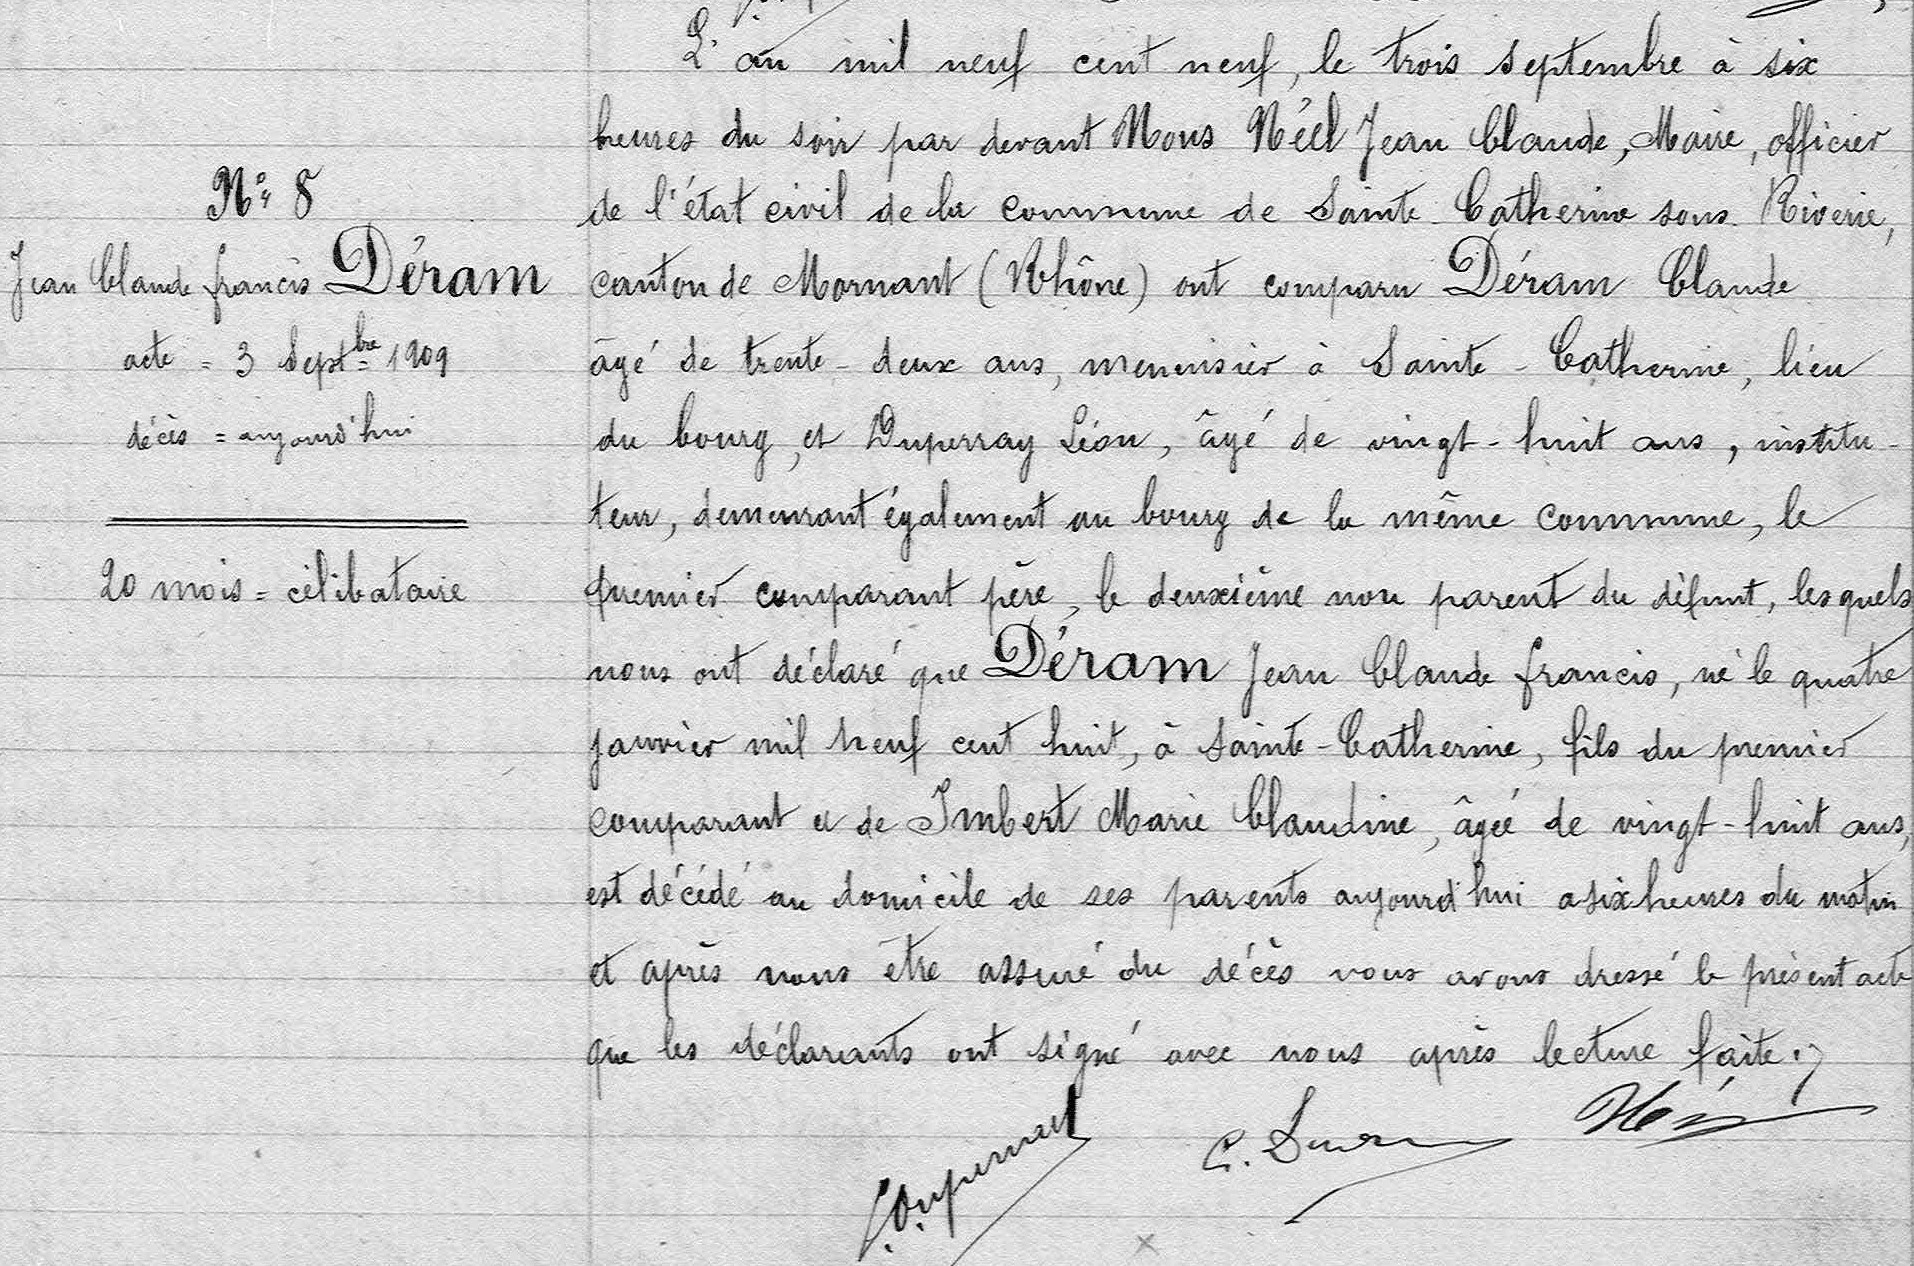 L'an mil neuf cent neuf, le trois septembre à six
heures du soir par devant Nous Néel Jean Claude, Maire, officier
de l'état civil de la commune de Sainte-Catherine sous Riverie,
canton de Mornant (Rhône) ont comparu Déram Claude
âgé de trente-deux ans, menuisier à Sainte-Catherine, lieu
du bourg, et Duperray Léon, âgé de vingt-huit ans, institu-
teur, demeurant également au bourg de la même commune, le
premier comparant père, le deuxième non parent du défunt, lesquels
nous ont déclaré que Déram Jean Claude francis, né le quatre
janvier mil neuf cent huit, à Sainte-Catherine, fils du premier
comparant et de Imbert Marie Claudine, âgée de vingt-huit ans,
est décédé au domicile de ses parents aujourd'hui a six heures du matin
et après nous être assuré du décès nous avons dressé le présent acte
que les déclarants ont signé avec nous après lecture faite.
N° 8
Jean Claude francis Déram
acte = 3 Septbre 1909
décès = aujourd'hui
20 mois = célibataire